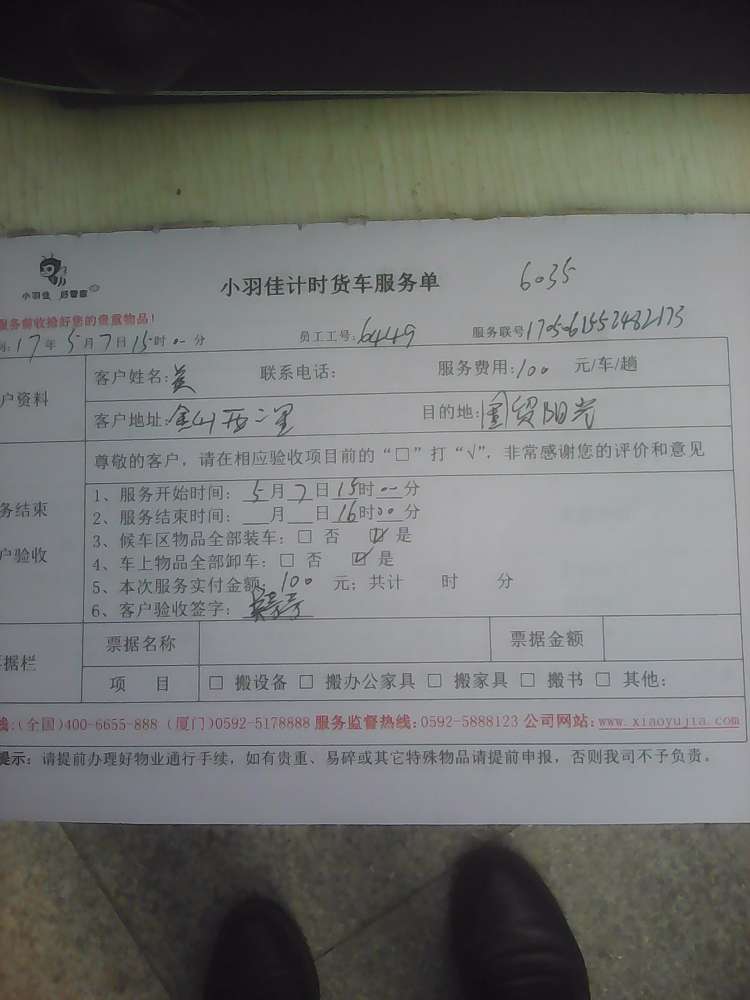 小羽佳 好管家
小羽佳计时货车服务单 6035
服务前收拾好您的贵重物品!
17年5月7日15时00分 员工工号:6449 服务联号
户资料
客户姓名: 联系电话: 服务费用:100 元/车/趟
客户地址:金山西二里 目的地:国贸阳光
务结束
户验收
尊敬的客户，请在相应验收项目前的“□”打“√”．非常感谢您的评价和意见
1、服务开始时间：5月7日15时00分
2、服务结束时间：__月__日16时00分
3、候车区物品全部装车：□ 否 ☑ 是
4、车上物品全部卸车：□ 否 ☑ 是
5、本次服务实付金额：100 元；共计 时 分
6、客户验收签字：
据栏
票据名称 票据金额
项 目 □ 搬设备 □ 搬办公家具 □ 搬家具 □ 搬书 □ 其他：
线:(全国)400-6655-888 (厦门)0592-5178888 服务监督热线:0592-5888123 公司网站:www.xiaoyujia.com
提示：请提前办理好物业通行手续，如有贵重、易碎或其它特殊物品请提前申报，否则我司不予负责。